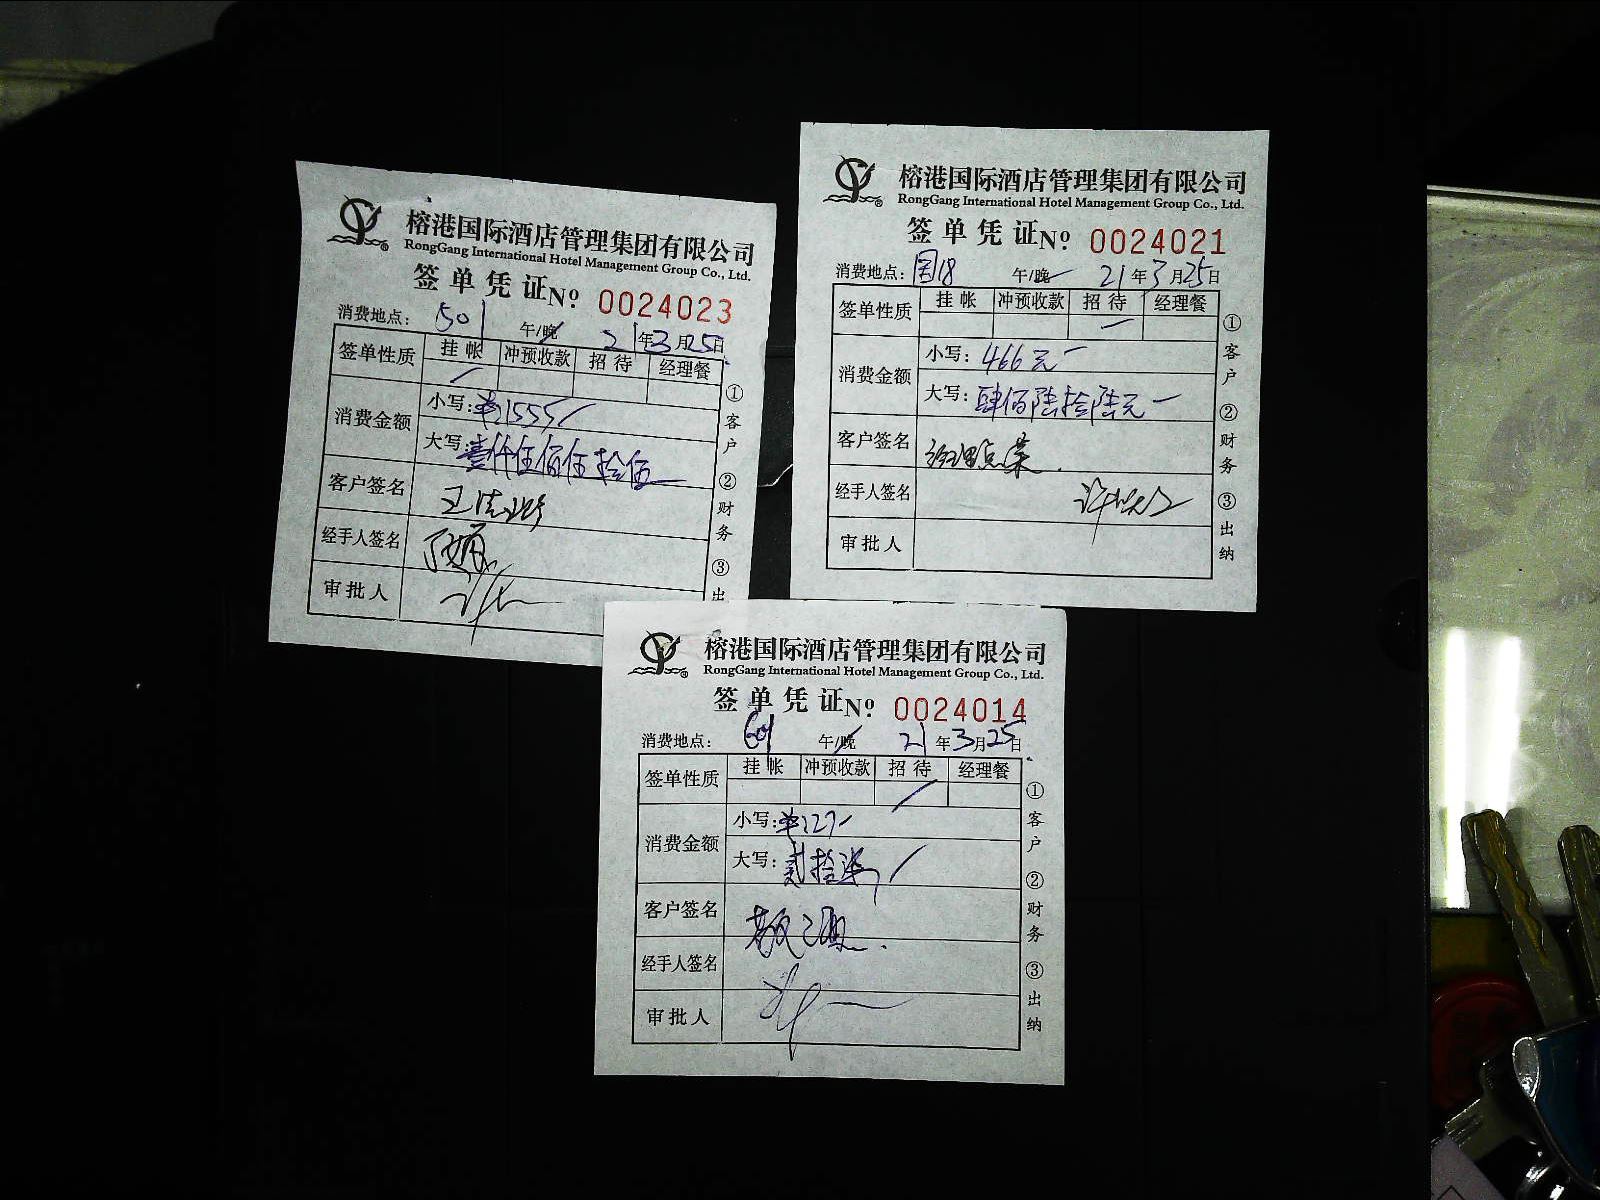 榕港国际酒店管理集团有限公司
RongGang International Hotel Management Group Co., Ltd.
签单凭证No 0024023
消费地点: 501 午/晚 21年3月25日
签单性质 挂帐 冲预收款 招待 经理餐
消费金额 小写: ¥1555/
大写: 壹仟伍佰伍拾伍
客户签名
经手人签名
审批人
①客户 ②财务 ③出
榕港国际酒店管理集团有限公司
RongGang International Hotel Management Group Co., Ltd.
签单凭证No 0024021
消费地点: 18 午/晚 21年3月25日
签单性质 挂帐 冲预收款 招待 经理餐
消费金额 小写: 466元
大写: 肆佰陆拾陆元
客户签名 经理点菜
经手人签名
审批人
①客户 ②财务 ③出纳
榕港国际酒店管理集团有限公司
RongGang International Hotel Management Group Co., Ltd.
签单凭证No 0024014
消费地点: 午/晚 21年3月25日
签单性质 挂帐 冲预收款 招待 经理餐
消费金额 小写:
大写: 贰拾柒
客户签名
经手人签名
审批人
①客户 ②财务 ③出纳